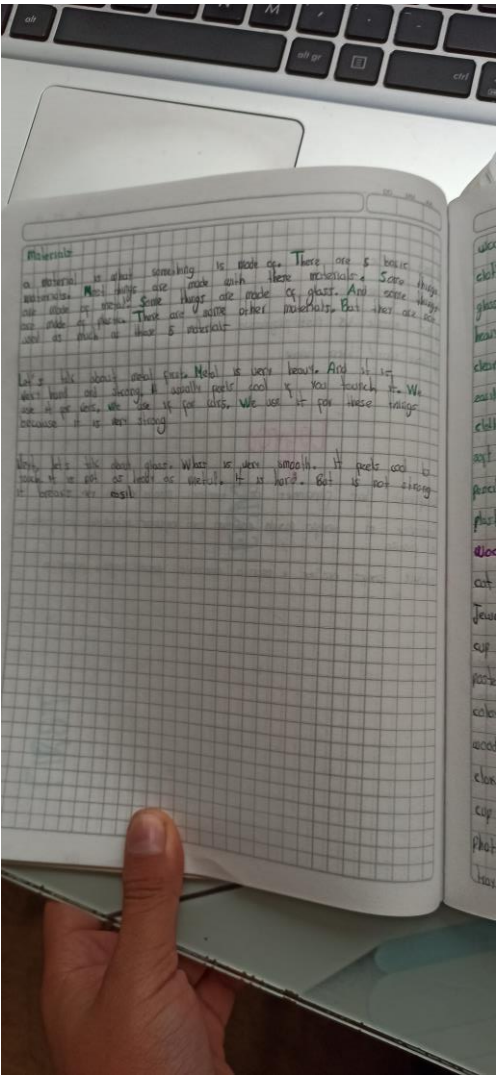 Materials
a material is what something is made of. There are 5 basic
materials. Most things are made with these materials. Some things
are made of metal. Some things are made of glass. And some things
are made of These are some other materials. But they are not
used as much as these 5 materials
Let's talk about metal first. Metal is very heavy. And it is
very hard and strong. It usually feels cool if you tourch it. We
use it for We use it for cars. We use it for these things
because it is very strong
Next, let's talk about glass. What is very smooth. It feels cool to
touch it is not as heavy as metal. It is hard. But is not strong
it breaks easil
M
alt
alt gr
ctrl
soft
plas
woo
cat
Jew
cup
colo
wood
clos
cup
phot